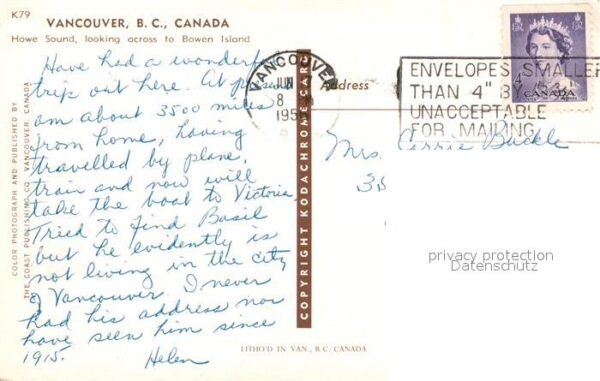 K79
VANCOUVER, B. C., CANADA
Howe Sound, looking across to Bowen Island
Have had a wonderful
trip out here. At
am about 3500 miles
from home, having
travelled by plane,
train and now will
take the boat to Victoria,
Tried to find Basil
but he evidently is
not living in the city
of Vancouver. I never
had his address nor
have seen him since
1915. Helen
COLOR PHOTOGRAPH AND PUBLISHED BY
THE COAST PUBLISHING CO. VANCOUVER, CANADA
COPYRIGHT KODACHROME CARD
VANCOUVER
JUN
8
195
Address
ENVELOPES SMALLER
THAN 4" BY
UNACCEPTABLE
FOR MAILING
CANADA
Mrs. Carrie Buckle
privacy protection
Datenschutz
LITHO'D IN VAN., B. C. CANADA